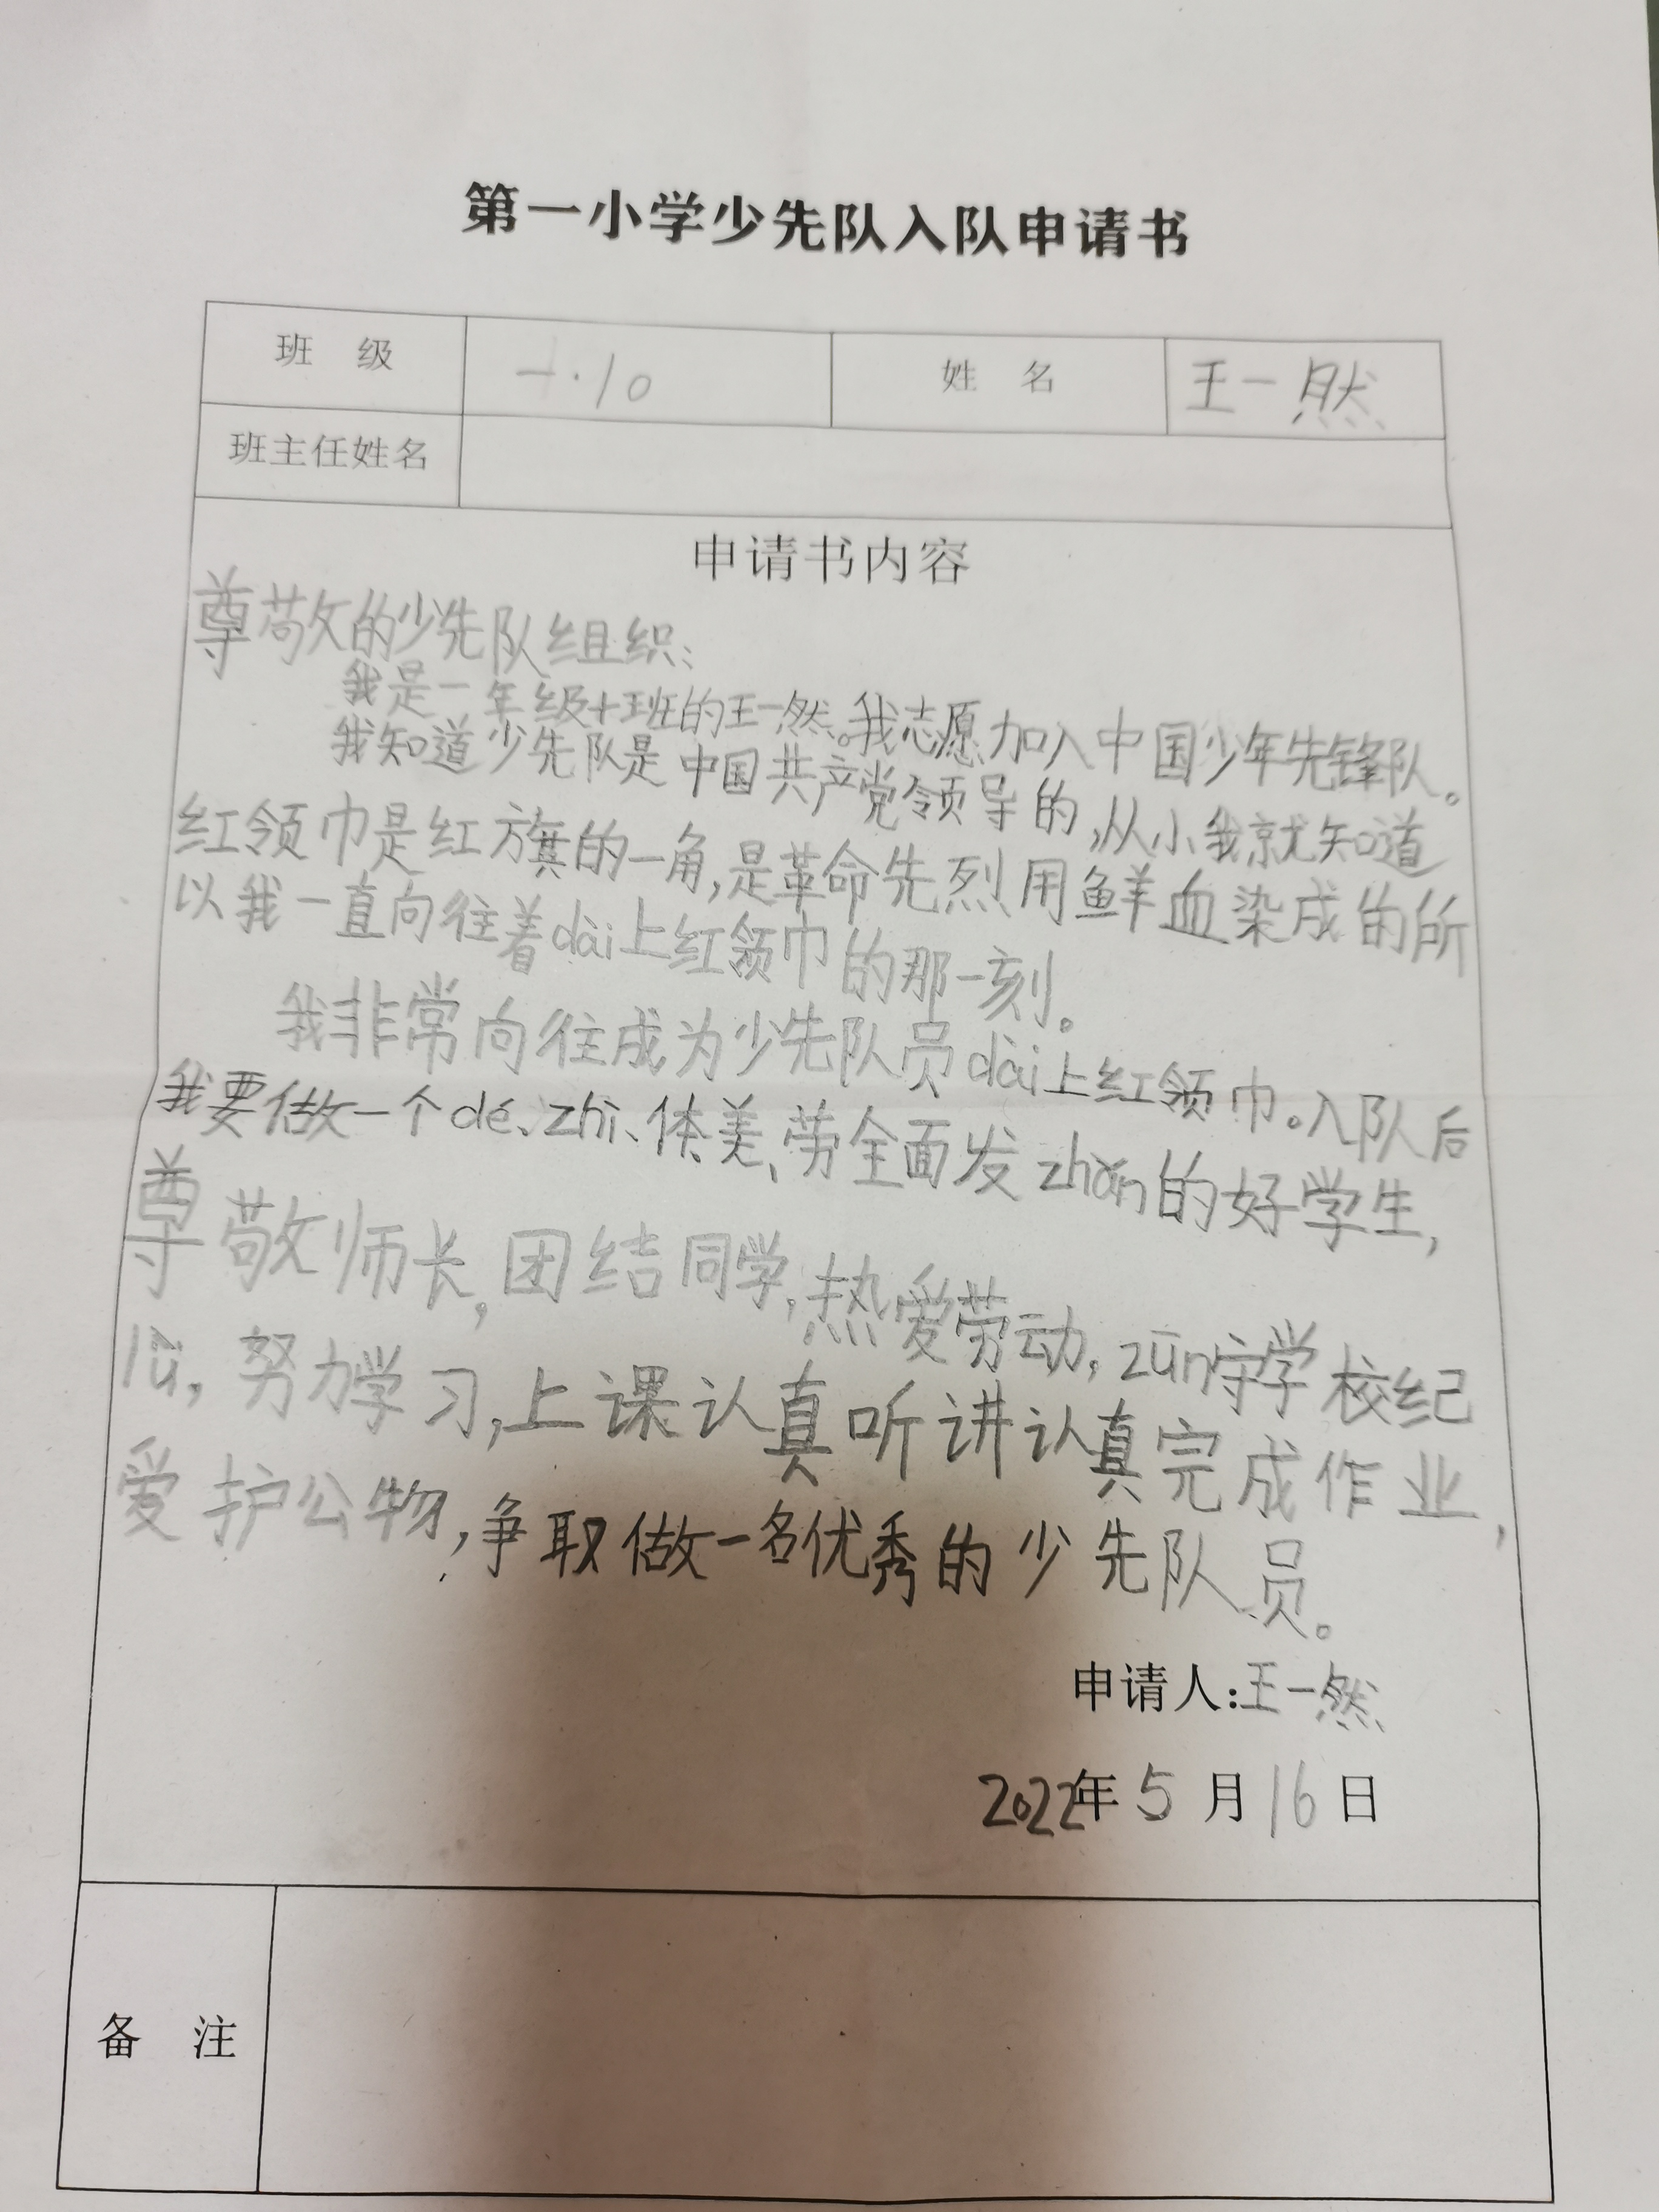 第一小学少先队入队申请书
班 级 一.10 姓 名 王一然
班主任姓名
申请书内容
尊敬的少先队组织:
我是一年级十班的王一然。我志愿加入中国少年先锋队。
我知道少先队是中国共产党领导的,从小我就知道
红领巾是红旗的一角,是革命先烈用鲜血染成的所
以我一直向往着dài上红领巾的那一刻。
我非常向往成为少先队员dài上红领巾。入队后
我要做一个dé、zhì、体、美、劳全面发zhǎn的好学生,
尊敬师长,团结同学,热爱劳动,zūn守学校纪
lǜ,努力学习,上课认真听讲认真完成作业,
爱护公物,争取做一名优秀的少先队员。
申请人:王一然
2022年5月16日
备 注